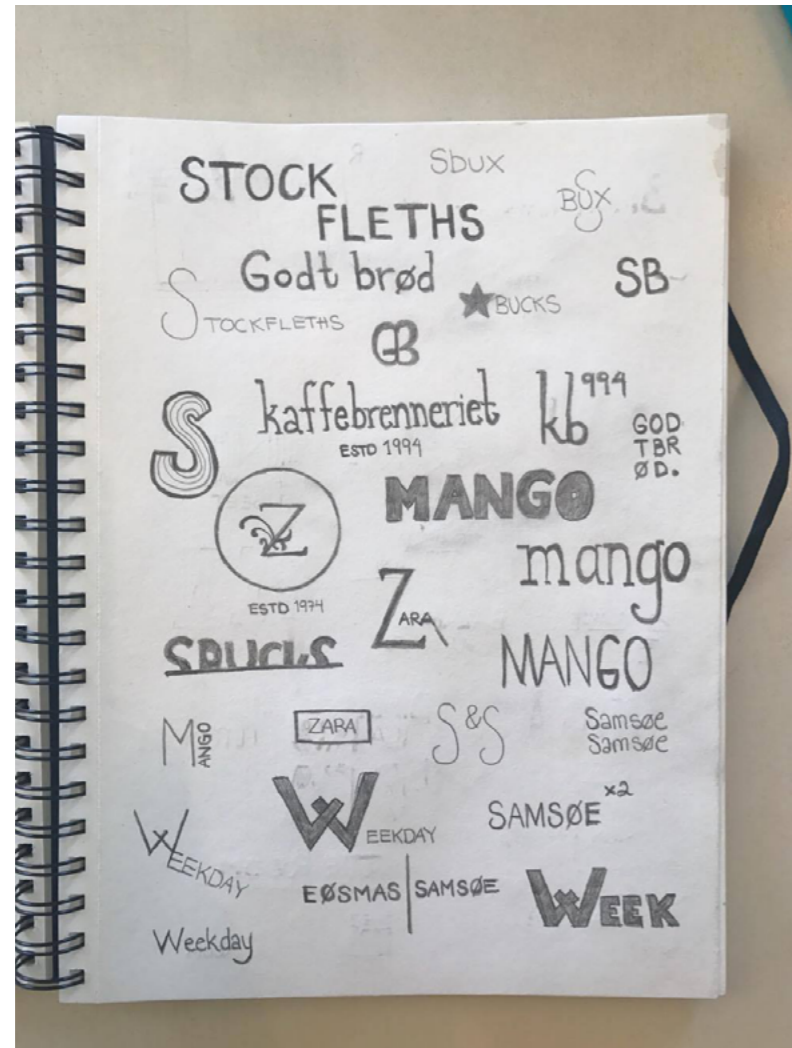 STOCK
FLETHS
Sbux
BUX
S
Godt brød
SB
STOCKFLETHS
★BUCKS
GB
S
kaffebrenneriet
ESTD 1994
kb994
GOD
TBR
ØD.
Z
ESTD 1974
MANGO
mango
ZARA
SBUCKS
MANGO
MANGO
ZARA
S&S
Samsøe
Samsøe
WEEKDAY
WEEKDAY
SAMSØE x2
EØSMAS | SAMSØE
WEEK
Weekday